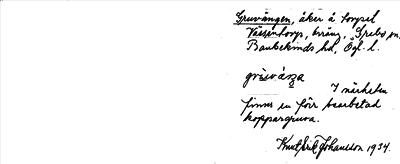 Gruvängen, åker å torpet
Västentorp, bräng, Grebo sn,
Bankekinds hd, Ögl. l.
I närheten
finns en förr bearbetad
koppargruva.
Knut Erik Johansson 1934.